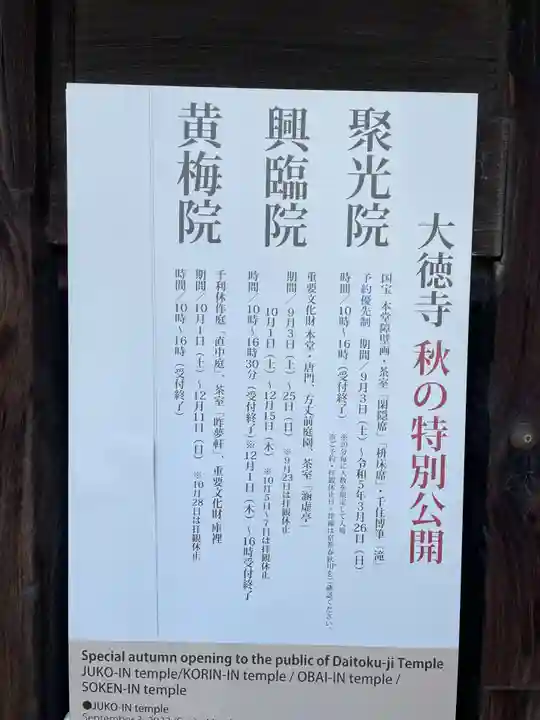 大徳寺 秋の特別公開
聚光院
国宝 本堂障壁画・茶室「閑隠席」「枡床席」・千住博筆「滝」
予約優先制 期間/9月3日(土)~令和5年3月26日(日)
時間/10時~16時(受付終了)
興臨院
重要文化財 本堂・唐門、方丈前庭園、茶室「涵虚亭」
期間/9月3日(土)~25日(日) ※9月23日は拝観休止
10月1日(土)~12月15日(木) ※10月5日~7日は拝観休止
時間/10時~16時30分(受付終了)※12月1日(木)~16時受付終了
黄梅院
千利休作庭「直中庭」、茶室「昨夢軒」、重要文化財 庫裡
期間/10月1日(土)~12月11日(日) ※10月28日は拝観休止
時間/10時~16時(受付終了)
Special autumn opening to the public of Daitoku-ji Temple
JUKO-IN temple/KORIN-IN temple / OBAI-IN temple /
SOKEN-IN temple
●JUKO-IN temple
September 3, 2022